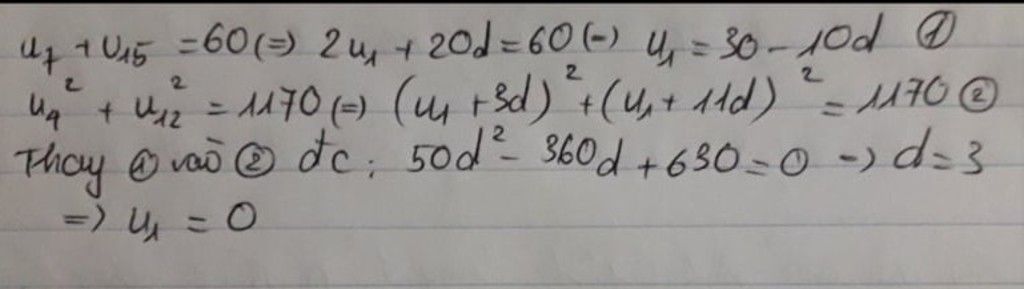 u₇ + u₁₅ = 60 (=) 2u₁ + 20d = 60 (-) u₁ = 30 - 10d ①
u₄² + u₁₂² = 1170 (=) (u₁ + 3d)² + (u₁ + 11d)² = 1170 ②
Thay ① vào ② đc : 50d² - 360d + 630 = 0 -> d = 3
=> u₁ = 0